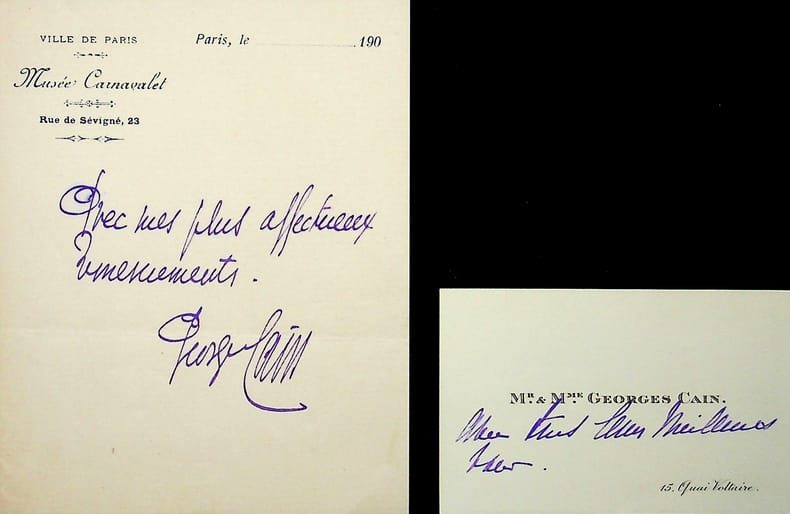 VILLE DE PARIS
Paris, le 190
Musée Carnavalet
Rue de Sévigné, 23
Avec mes plus affectueux
remerciements.
Georges Cain
Mr. & Mme. Georges Cain.
Avec tous leurs Meilleurs
vœux.
15, Quai Voltaire.